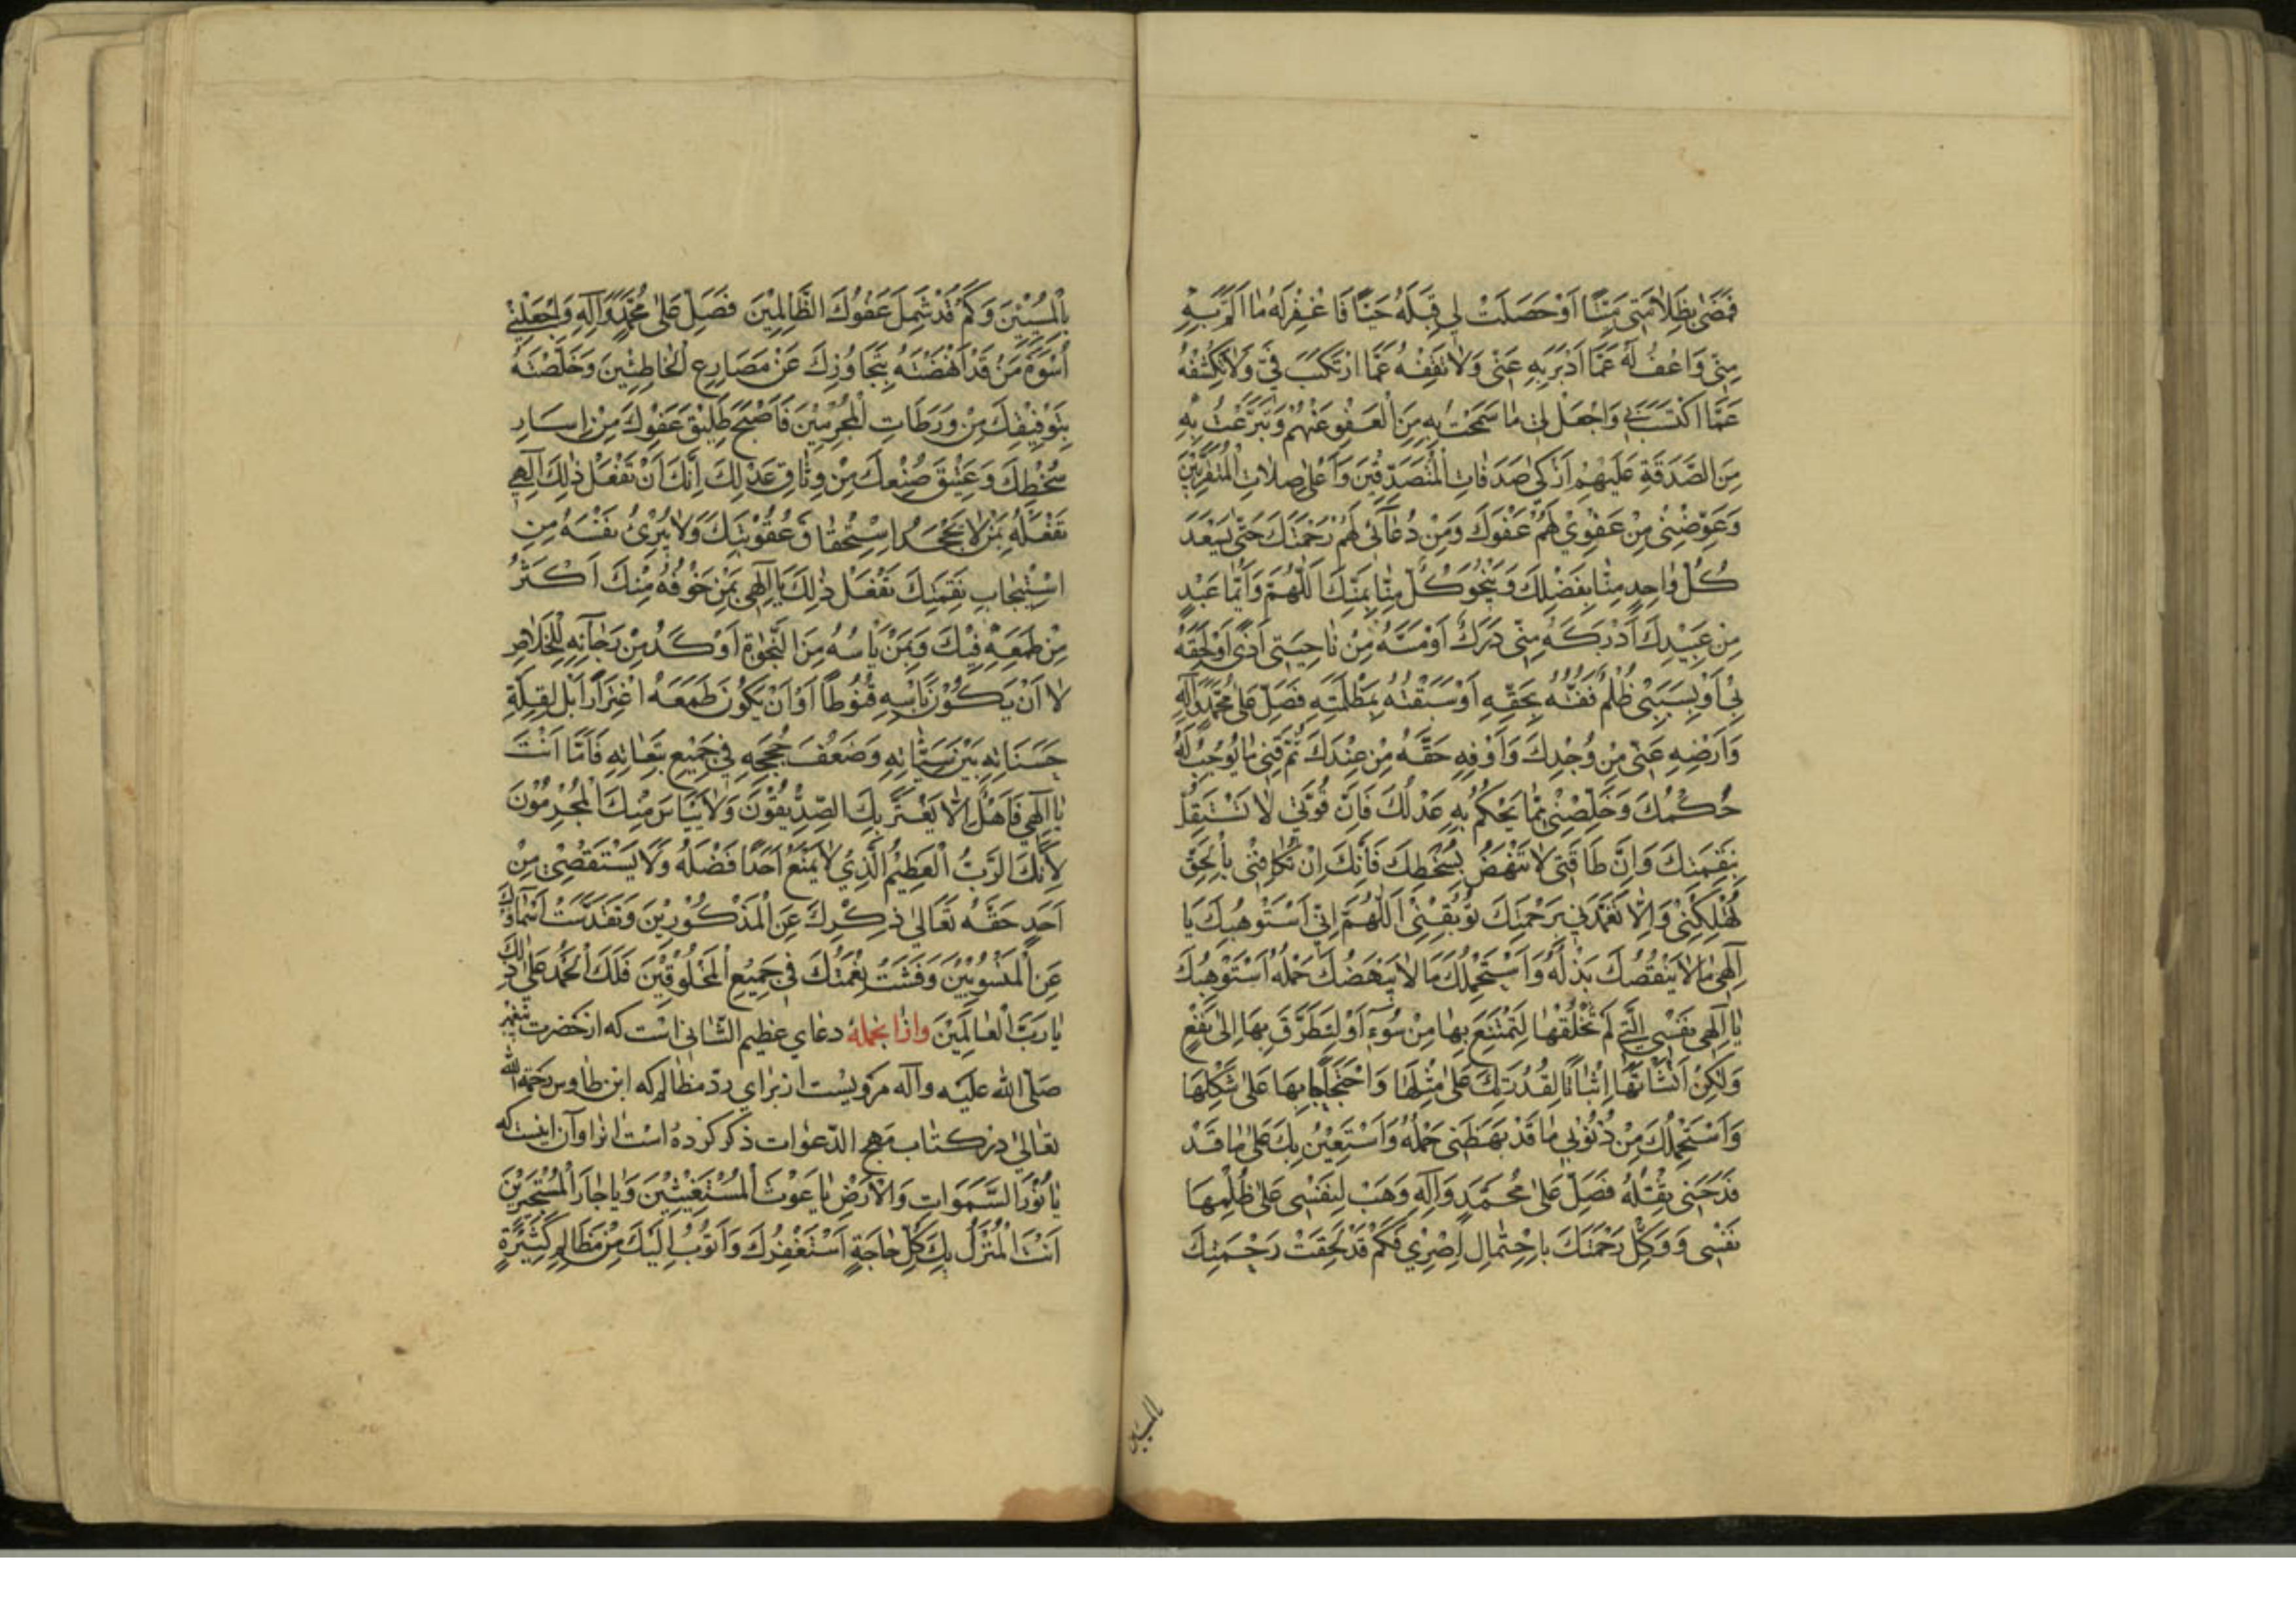 فَمَضٰى بِظُلَامَتِي مَيِّتًا اَوْ حَصَلَتْ لِي قِبَلَهُ حَيًّا فَاغْفِرْ لَهُ مَا اَلَمَّ بِهِ
مِنِّي وَاعْفُ لَهُ عَمَّا اَدْبَرَ بِهِ عَنِّي وَلَا تَقِفْهُ عَمَّا ارْتَكَبَ فِيَّ وَلَا تَكْشِفْهُ
عَمَّا اكْتَسَبَ بِي وَاجْعَلْ لِي مَا سَمَحْتُ بِهِ مِنَ الْعَفْوِ عَنْهُمْ وَتَبَرَّعْتُ بِهِ
مِنَ الصَّدَقَةِ عَلَيْهِمْ اَزْكٰى صَدَقَاتِ الْمُتَصَدِّقِينَ وَاَعْلٰى صِلَاتِ الْمُتَقَرِّبِينَ
وَعَوِّضْنِي مِنْ عَفْوِي لَهُمْ عَفْوَكَ وَمِنْ دُعَائِي لَهُمْ رَحْمَتَكَ حَتّٰى يَسْعَدَ
كُلُّ وَاحِدٍ مِنَّا بِفَضْلِكَ وَيَنْجُوَ كُلٌّ مِنَّا بِمَنِّكَ اَللّٰهُمَّ وَاَيُّمَا عَبْدٍ
مِنْ عَبِيدِكَ اَدْرَكَهُ مِنِّي دَرَكٌ اَوْ مَسَّهُ مِنْ نَاحِيَتِي اَذًى اَوْ لَحِقَهُ
بِي اَوْ بِسَبَبِي ظُلْمٌ فَفُتُّهُ بِحَقِّهِ اَوْ سَبَقْتُهُ بِمَظْلِمَتِهِ فَصَلِّ عَلٰى مُحَمَّدٍ وَاٰلِهِ
وَاَرْضِهِ عَنِّي مِنْ وُجْدِكَ وَاَوْفِهِ حَقَّهُ مِنْ عِنْدِكَ ثُمَّ قِنِي مَا يُوجِبُ لَهُ
حُكْمُكَ وَخَلِّصْنِي مِمَّا يَحْكُمُ بِهِ عَدْلُكَ فَاِنَّ قُوَّتِي لَا تَسْتَقِلُّ
بِنَقِمَتِكَ وَاِنَّ طَاقَتِي لَا تَنْهَضُ بِسُخْطِكَ فَاِنَّكَ اِنْ تُكَافِنِي بِالْحَقِّ
تُهْلِكْنِي وَاِلَّا تَغَمَّدْنِي بِرَحْمَتِكَ تُوبِقْنِي اَللّٰهُمَّ اِنِّي اَسْتَوْهِبُكَ يَا
اِلٰهِي مَا لَا يَنْقُصُكَ بَذْلُهُ وَاَسْتَحْمِلُكَ مَا لَا يَبْهَضُكَ حَمْلُهُ اَسْتَوْهِبُكَ
يَا اِلٰهِي نَفْسِيَ الَّتِي لَمْ تَخْلُقْهَا لِتَمْتَنِعَ بِهَا مِنْ سُوءٍ اَوْ لِتَطَرَّقَ بِهَا اِلٰى نَفْعٍ
وَلٰكِنْ اَنْشَاْتَهَا اِثْبَاتًا لِقُدْرَتِكَ عَلٰى مِثْلِهَا وَاحْتِجَاجًا بِهَا عَلٰى شَكْلِهَا
وَاَسْتَحْمِلُكَ مِنْ ذُنُوبِي مَا قَدْ بَهَظَنِي حَمْلُهُ وَاَسْتَعِينُ بِكَ عَلٰى مَا قَدْ
فَدَحَنِي ثِقْلُهُ فَصَلِّ عَلٰى مُحَمَّدٍ وَاٰلِهِ وَهَبْ لِنَفْسِي عَلٰى ظُلْمِهَا
نَفْسِي وَوَكِّلْ رَحْمَتَكَ بِاحْتِمَالِ اِصْرِي فَكَمْ قَدْ لَحِقَتْ رَحْمَتُكَ
بالمسيئين
بِالْمُسِيئِينَ وَكَمْ قَدْ شَمِلَ عَفْوُكَ الظَّالِمِينَ فَصَلِّ عَلٰى مُحَمَّدٍ وَاٰلِهِ وَاجْعَلْنِي
اُسْوَةَ مَنْ قَدْ اَنْهَضْتَهُ بِتَجَاوُزِكَ عَنْ مَصَارِعِ الْخَاطِئِينَ وَخَلَّصْتَهُ
بِتَوْفِيقِكَ مِنْ وَرَطَاتِ الْمُجْرِمِينَ فَاَصْبَحَ طَلِيقَ عَفْوِكَ مِنْ اِسَارِ
سُخْطِكَ وَعَتِيقَ صُنْعِكَ مِنْ وِثَاقِ عَدْلِكَ اِنَّكَ اَنْ تَفْعَلْ ذٰلِكَ اِلٰهِي
تَفْعَلْهُ بِمَنْ لَا يَجْحَدُ اسْتِحْقَاقَ عُقُوبَتِكَ وَلَا يُبَرِّئُ نَفْسَهُ مِنِ
اسْتِيجَابِ نَقِمَتِكَ تَفْعَلْ ذٰلِكَ يَا اِلٰهِي بِمَنْ خَوْفُهُ مِنْكَ اَكْثَرُ
مِنْ طَمَعِهِ فِيكَ وَبِمَنْ يَاْسُهُ مِنَ النَّجٰوةِ اَوْكَدُ مِنْ رَجَائِهِ لِلْخَلَاصِ
لَا اَنْ يَكُونَ يَاْسُهِ قُنُوطًا اَوْ اَنْ يَكُونَ طَمَعُهُ اغْتِرَارًا بَلْ لِقِلَّةِ
حَسَنَاتِهِ بَيْنَ سَيِّئَاتِهِ وَضَعْفِ حُجَجِهِ فِي جَمِيعِ تَبِعَاتِهِ فَاَمَّا اَنْتَ
يَا اِلٰهِي فَاَهْلٌ اَلَّا يَغْتَرَّ بِكَ الصِّدِّيقُونَ وَلَا يَيْاَسَ مِنْكَ الْمُجْرِمُونَ
لِاَنَّكَ الرَّبُّ الْعَظِيمُ الَّذِي لَا يَمْنَعُ اَحَدًا فَضْلَهُ وَلَا يَسْتَقْصِي مِنْ
اَحَدٍ حَقَّهُ تَعَالٰى ذِكْرُكَ عَنِ الْمَذْكُورِينَ وَتَقَدَّسَتْ اَسْمَاؤُكَ
عَنِ الْمَنْسُوبِينَ وَفَشَتْ نِعْمَتُكَ فِي جَمِيعِ الْمَخْلُوقِينَ فَلَكَ الْحَمْدُ عَلٰى ذٰلِكَ
يَا رَبَّ الْعَالَمِينَ وازانجمله دعاي عظيم الشّانی است كه از حضرت پیغمبر
صلّى الله عليه وآله مرويست از براي ردّ مظالم كه ابن طاوس رحمه الله
تعالى در كتاب مهج الدّعوات ذكر كرده است انرا وآن اينست كه
يَا نُورَ السَّمٰوَاتِ وَالْاَرْضِ يَا غَوْثَ الْمُسْتَغِيثِينَ وَيَا جَارَ الْمُسْتَجِيرِينَ
اَنْتَ الْمُنْزَلُ بِكَ كُلُّ حَاجَةٍ اَسْتَغْفِرُكَ وَاَتُوبُ اِلَيْكَ مِنْ مَظَالِمَ كَثِيرَةٍ